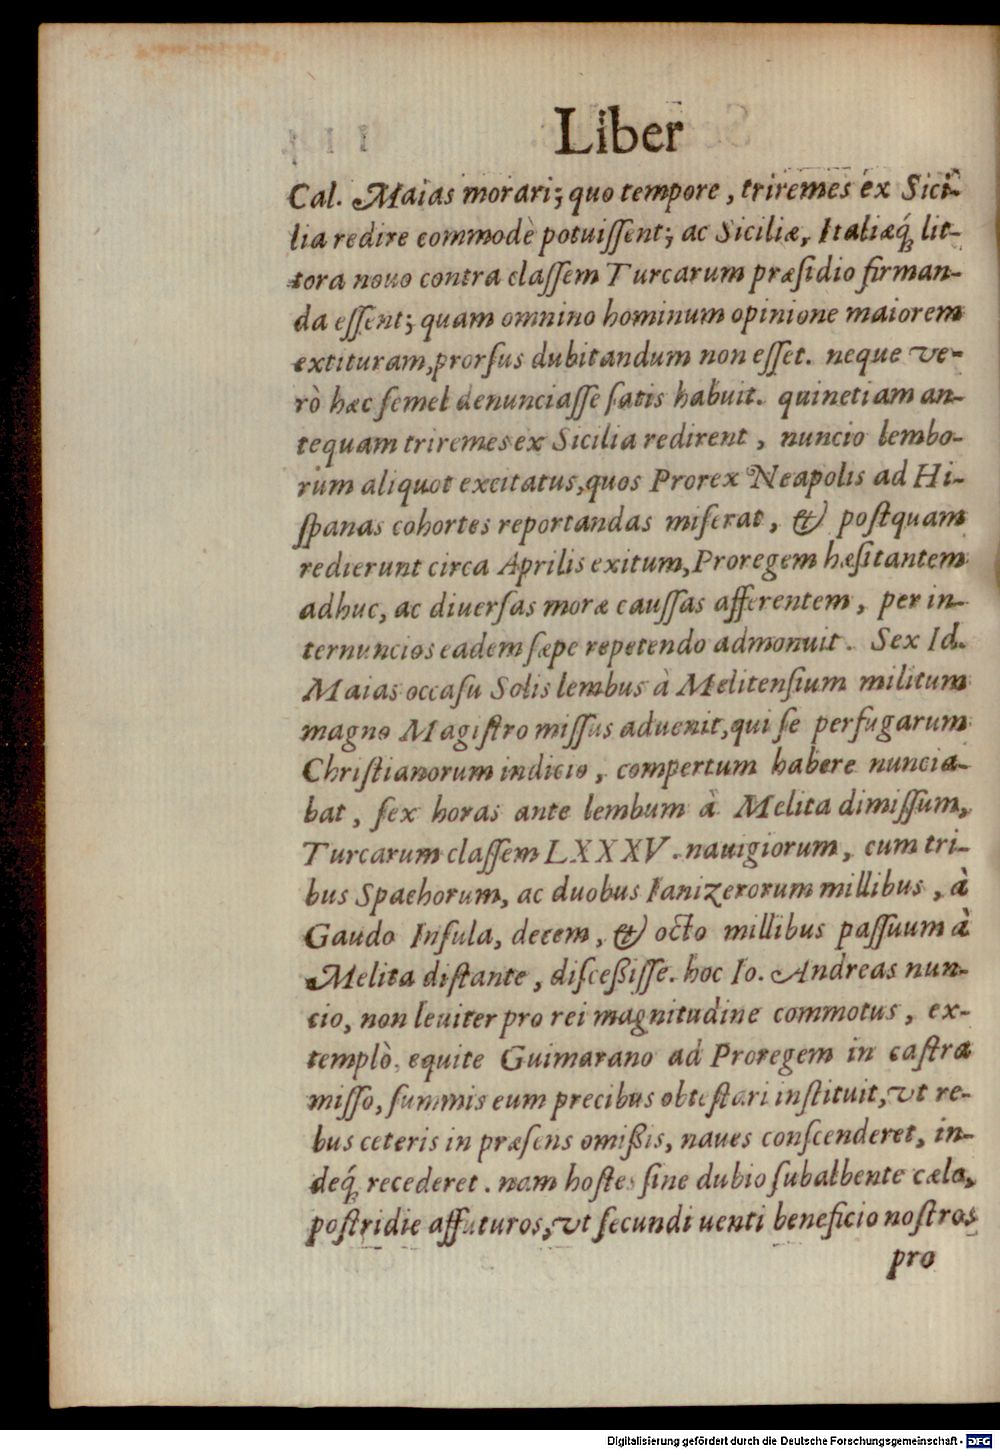 Liber
Cal. Maias morari; quo tempore, triremes ex Sici-
lia redire commodè potuiſſent; ac Siciliæ, Italiæq́; lit-
tora nouo contra claſſem Turcarum præſidio firman-
da eſſent; quam omnino hominum opinione maiorem
extituram, prorſus dubitandum non eſſet. neque ve-
rò hæc ſemel denunciaſſe ſatis habuit. quinetiam an-
tequam triremes ex Sicilia redirent, nuncio lembo-
rum aliquot excitatus, quos Prorex Neapolis ad Hi-
ſpanas cohortes reportandas miſerat, & poſtquam
redierunt circa Aprilis exitum, Proregem hæſitantem
adhuc, ac diuerſas moræ cauſſas afferentem, per in-
ternuncios eadem ſæpe repetendo admonuit. Sex Id.
Maias occaſu Solis lembus à Melitenſium militum
magno Magiſtro miſſus aduenit, qui ſe perfugarum
Chriſtianorum indicio, compertum habere nuncia-
bat, ſex horas ante lembum à Melita dimiſſum,
Turcarum claſſem LXXXV. nauigiorum, cum tri-
bus Spachorum, ac duobus Ianizerorum millibus, à
Gaudo Inſula, decem, & octo millibus paſſuum à
Melita diſtante, diſceßiſſe. hoc Io. Andreas nun-
cio, non leuiter pro rei magnitudine commotus, ex-
templò, equite Guimarano ad Proregem in caſtra
miſſo, ſummis eum precibus obteſtari inſtituit, vt re-
bus ceteris in præſens omißis, naues conſcenderet, in-
deq́; recederet. nam hoſtes ſine dubio ſubalbente cælo,
poſtridie affuturos, vt ſecundi uenti beneficio noſtros
pro
Digitalisierung gefördert durch die Deutsche Forschungsgemeinschaft - DFG